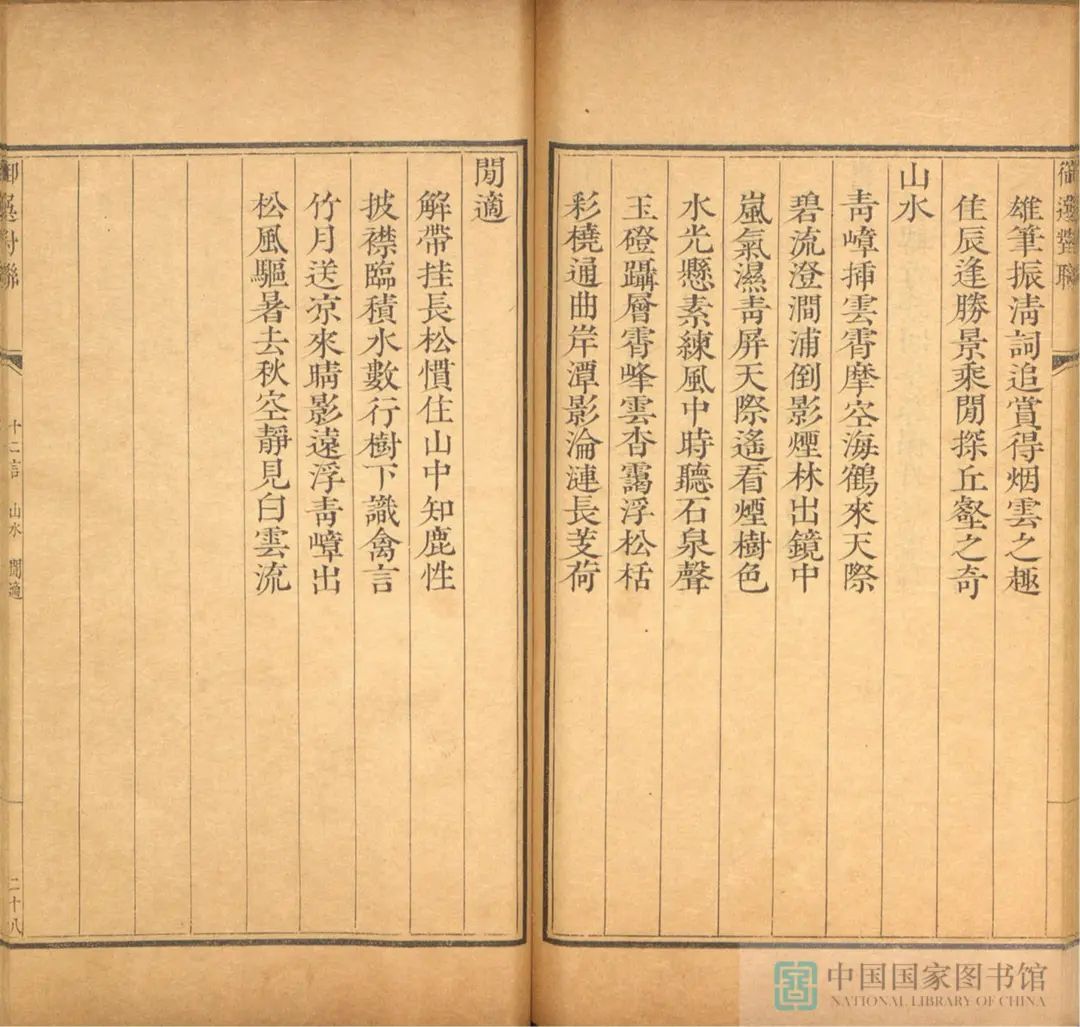 雄筆振淸詞追賞得烟雲之趣
佳辰逢勝景乘閒探丘壑之奇
山水
靑嶂揷雲霄摩空海鶴來天際
碧流澄澗浦倒影煙林出鏡中
嵐氣濕靑屏天際遙看煙樹色
水光懸素練風中時聽石泉聲
玉磴躡層霄峰雲杳靄浮松栝
彩橈通曲岸潭影淪漣長芰荷
閒適
解帶挂長松慣住山中知鹿性
披襟臨積水數行樹下識禽言
竹月送凉來晴影遠浮靑嶂出
松風驅暑去秋空靜見白雲流
對聯
十二言 山水 閒適
二十八
中国国家图书馆
NATIONAL LIBRARY OF CHINA